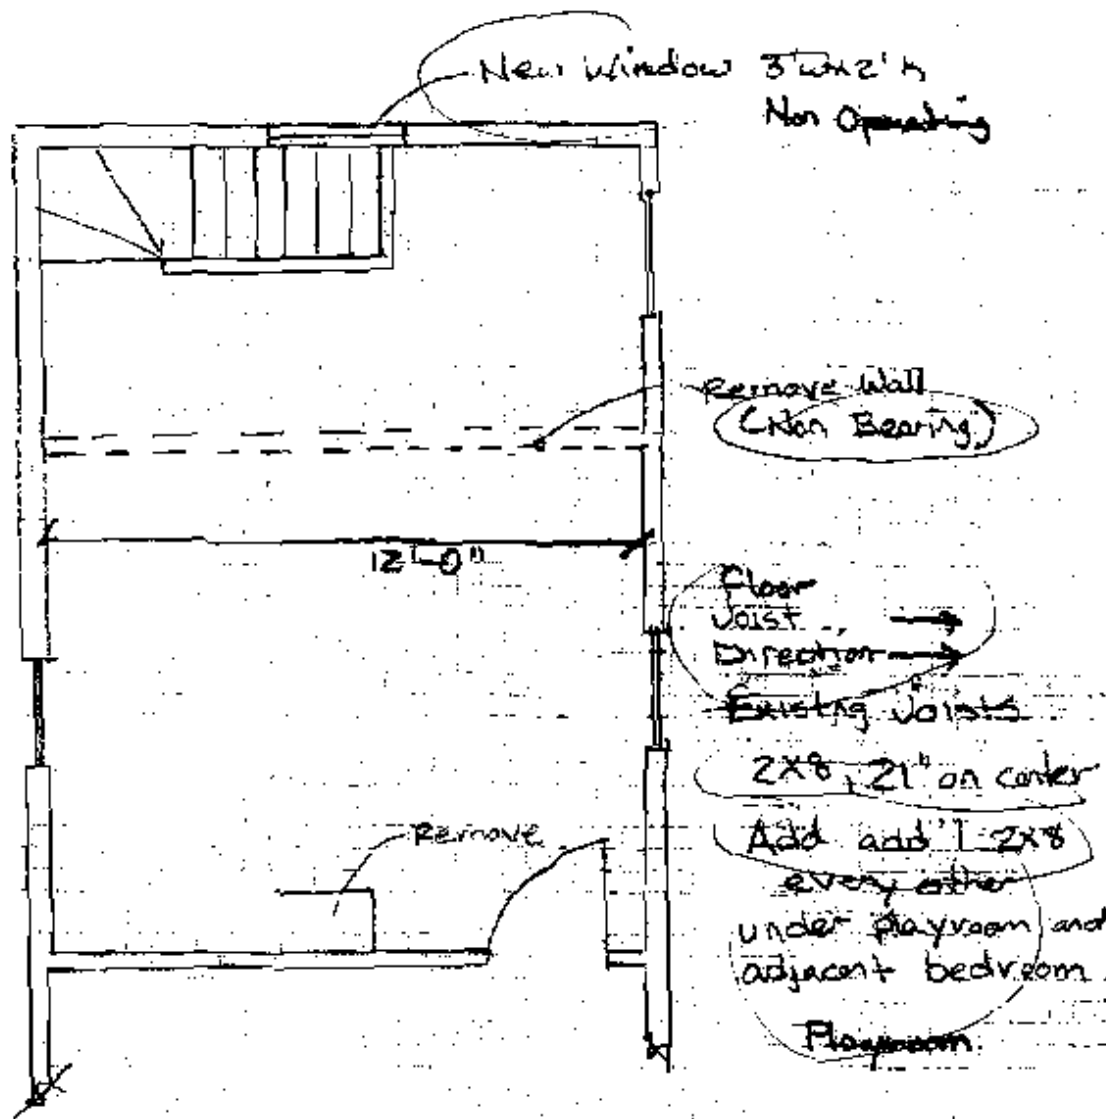 New Window 3'w x 2' h
Non Operating
Remove Wall
(Non Bearing)
12'-0"
Floor
Joist
Direction
Existng Joists
2X8, 21" on center
Remove
Add add'l 2x8
every other
under playroom and
adjacent bedroom.
Playroom